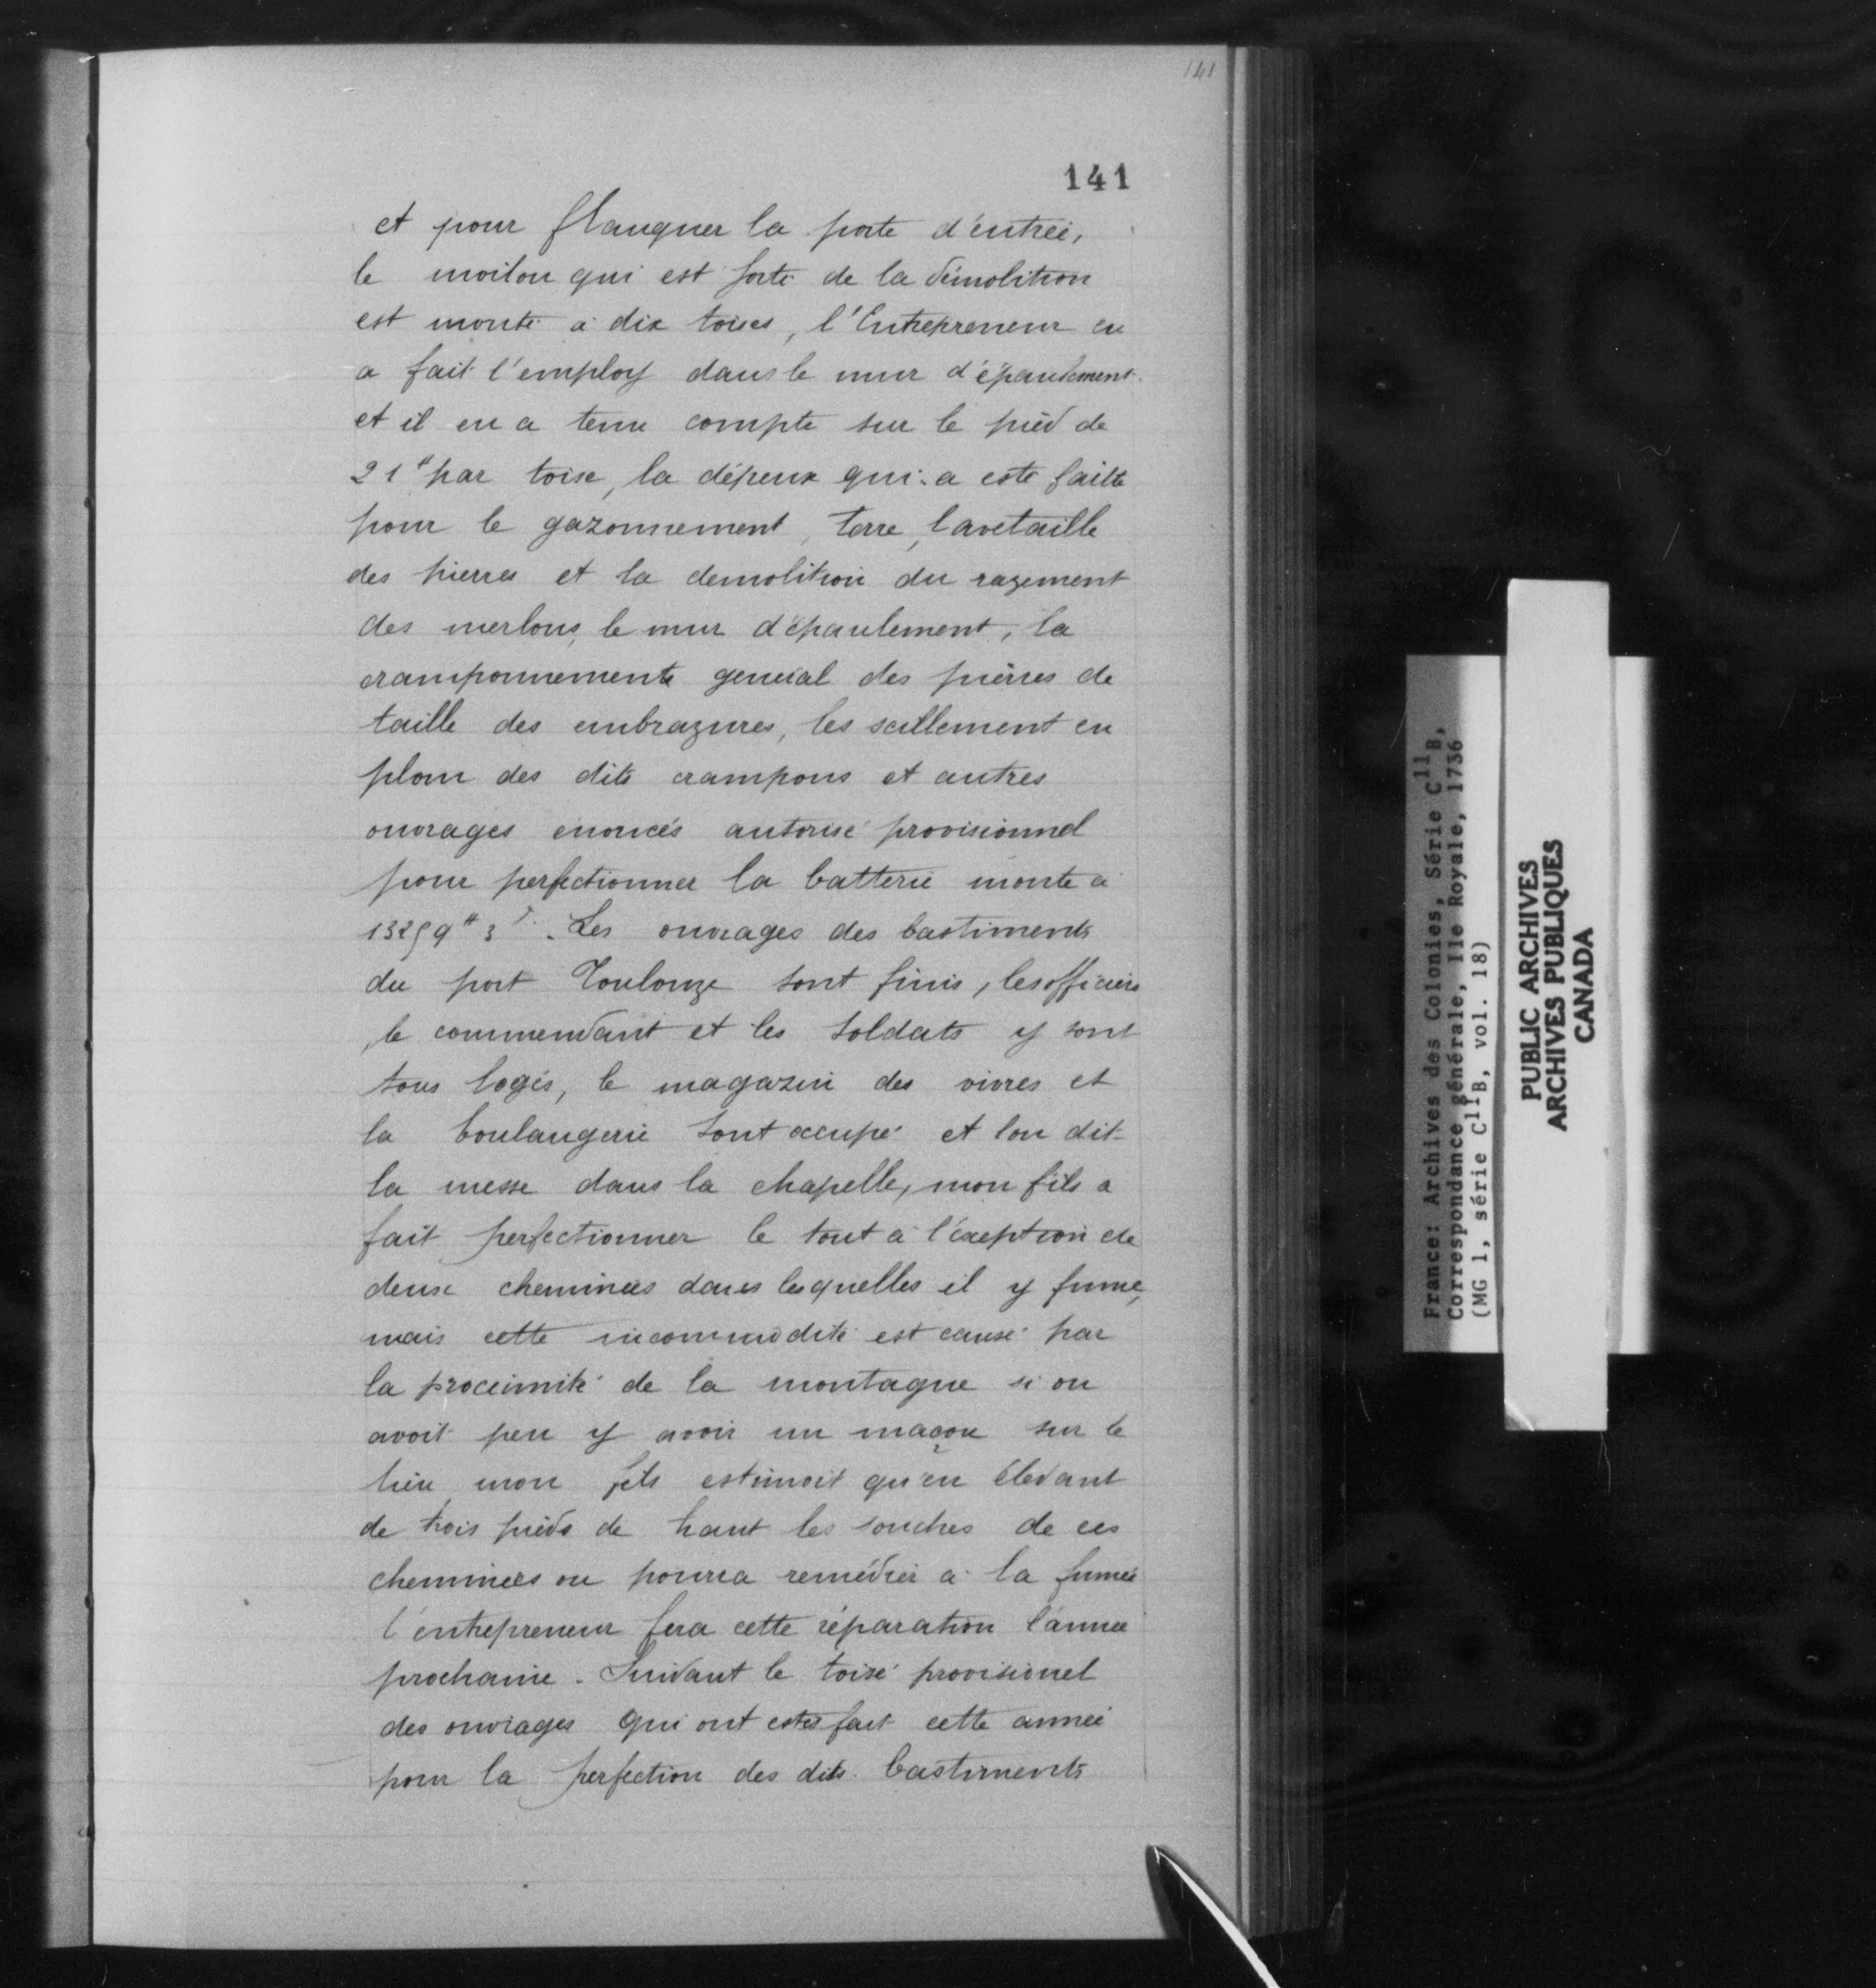 141
141
et pour flanquer la porte d'entrée,
le moilon qui est sorti de la démolition
est monté à dix toises, l'Entrepreneur en
a fait l'employ dans le mur d'épaulement
et il en a tenu compte sur le pied de
21# par toise, la dépense qui a esté faitte
pour le gazonnement, terre,
des pierres et la demolition du razement
des merlons, le mur d'épaulement, la
cramponnements general des pierres de
taille des embrazures, les scellement en
plom des dits crampons et autres
ouvrages énoncés autorisé provisionnel
pour perfectionner la batterie monte à
13259# 3 s. Les ouvrages des bastiments
du port Toulouze sont finis, les officiers
le commendant et les soldats y sont
tous logés, le magazin des vivres et
la boulangerie sont occupé et lon dit
la messe dans la chapelle, mon fils a
fait perfectionner le tout à l'éxeption de
deux cheminées dans lesquelles il y fume,
mais cette incommodité est causé par
la proximité de la montagne si on
avoit peu y avoir un maçon sur le
lieu mon fils estimoit qu'en élevant
de trois pieds de haut les souches de ces
cheminées on pourra remédier à la fumée
l'entrepreneur fera cette réparation l'année
prochaine. Suivant le toisé provisionel
des ouvrages qui ont estés fait cette année
pour la perfection des dits bastiments
France: Archives des Colonies, Série C11B,
Correspondance générale, Ile Royale, 1736
(MG 1, série C11B, vol. 18)
PUBLIC ARCHIVES
ARCHIVES PUBLIQUES
CANADA